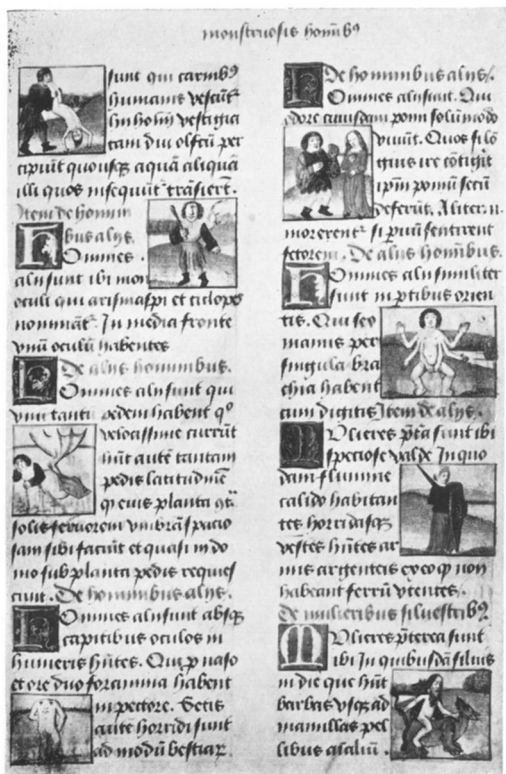 monstruosis homĩbꝰ
sunt qui carnibꝰ
humanis vescũt᷑
hii homĩs vestigia
tam diu olfctũ per
cipiunt quousqꝫ aquã aliquã
illi quos insequunt᷑ trãsierẽt.
Item de homini
bus alijs.
Omnes
alii sunt ibi mon
oculi qui arismaspi et ciclopes
nominãt᷑. In media fronte
vnũ oculũ habentes
De alijs hominibus.
Omines alii sunt qui
vnũ tantũ pedem habent qͦ
velocissime currũt
hñt autẽ tantam
pedis latitudinẽ
q̃ eius planta cõtᵃ
solis feruorem vmbrã spacio
sam sibi faciũt et quasi in do
mo sub planta pedis requies
cunt. De hominibus alijs.
Omines alii sunt absqꝫ
capitibus oculos in
humeris hñtes. Qui ꝓ naso
et ore duo foramina habent
in pectore. Setis
autẽ horridi sunt
ad modũ bestiaꝝ.
De hominibus alijs.
Omines alii sunt. Qui
odore cuiusdam pomi solũmodo
viuũt. Quos si lõ
gius ire cõtigit
ip̃m pomũ secũ
deferũt. Aliter. n.
morerent᷑ si ꝑuũ sentirent
fetorem. De alijs homĩbus.
Omines alii similiter
sunt in ꝑtibus orien
tis. Qui sex
manus per
singula bra
chia habent
cum digitis Item de alijs.
Vlieres p̃tea sunt ibi
speciose valde In quo
dam flumine
calido habitan
tes horridasqꝫ
vestes hñtes ar
mis argenteis ex eo qꝫ non
habeant ferrũ vtentes.
De mulieribus siluestribꝰ
Vlieres p̃terea sunt
ibi In quibusdã siluis
indie que hñt
barbas vsqꝫ ad
mamillas pel
libus aĩaliũ.